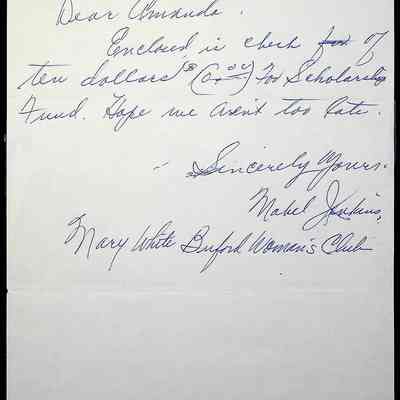 Dear Amanda.
Enclosed is check for of
ten dollars For Scholarship
Fund. Hope we aren't too late.
Sincerely Yours.
Mabel Jenkins,
Mary White Buford Women's Club